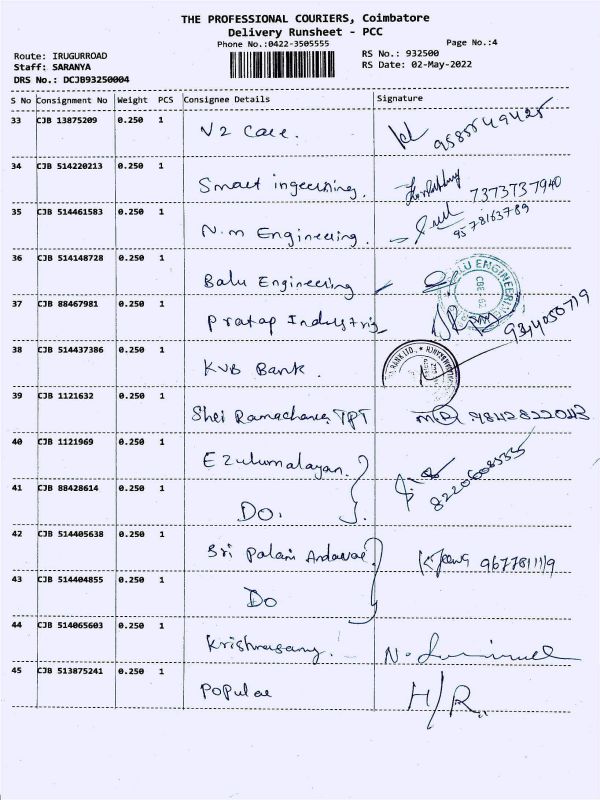 THE PROFESSIONAL COURIERS, Coimbatore
Delivery Runsheet - PCC
Phone No.:0422-3505555
Page No.:4
Route: IRUGURROAD
RS No.: 932500
Staff: SARANYA
RS Date: 02-May-2022
DRS No.: DCJB93250004
S No Consignment No Weight PCS Consignee Details Signature
33 CJB 13875209 0.250 1 V2 Care. 9585549425
34 CJB 514220213 0.250 1 Smart 7373737940
35 CJB 514461583 0.250 1 N.m Engineering. 9578163789
36 CJB 514148728 0.250 1 Balu Engineering
37 CJB 88467981 0.250 1 Pratap Industris
38 CJB 514437386 0.250 1 KVB Bank.
39 CJB 1121632 0.250 1 Shri TPT 9842822043
40 CJB 1121969 0.250 1 Ezulumalayan.
41 CJB 88428614 0.250 1 Do. 8220608535
42 CJB 514405638 0.250 1 Sri Palani 9677811119
43 CJB 514404855 0.250 1 Do
44 CJB 514065603 0.250 1
45 CJB 513875241 0.250 1 Popular H/R